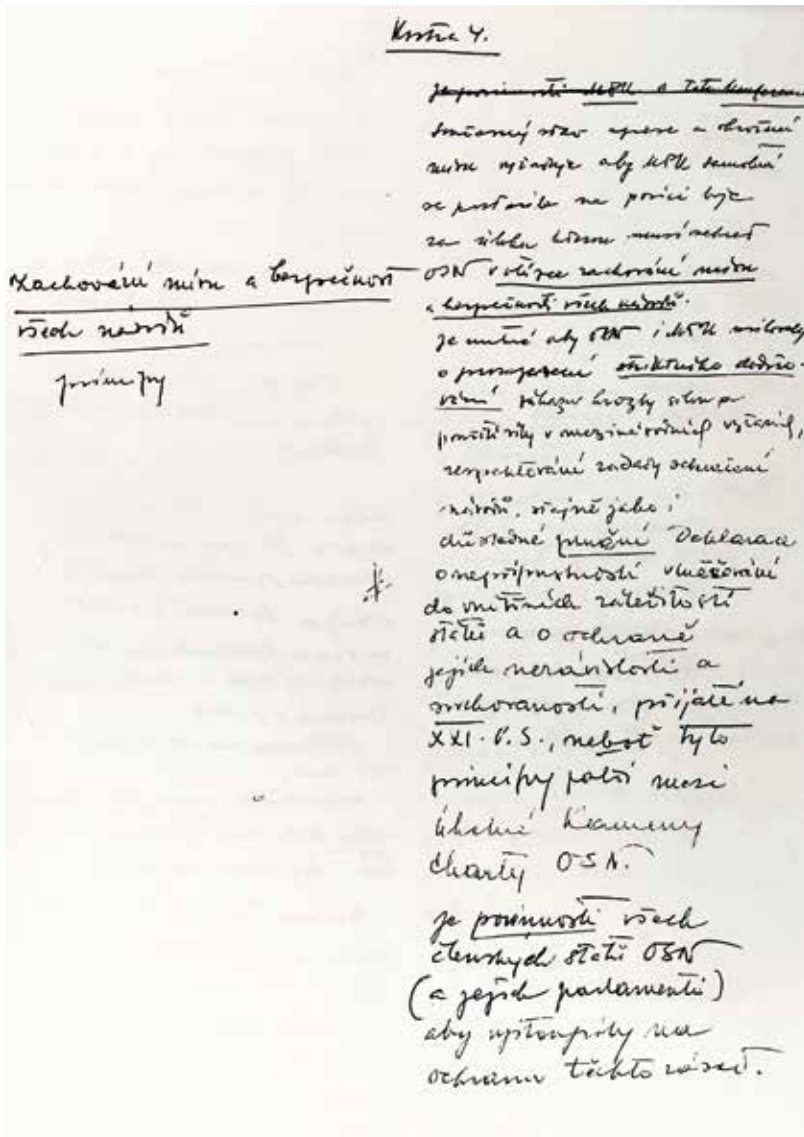 Kostra 4.
je povinností MPU a této konference
současný stav agrese a ohrožení
míru vyžaduje aby MPU
se postavila na pozici
za
OSN v otázce zachování míru
a bezpečnosti všech národů.
Zachování míru a bezpečnosti
všech národů
principy
je nutné aby OSN i MPU usilovaly
o prosazení striktního dodržo-
vání zákazu hrozby silou
použití síly v mezinárodních vztazích,
respektování zásady sebeurčení
národů, stejně jako i
důsledné plnění Deklarace
o nepřípustnosti vměšování
do vnitřních záležitostí
států a o ochraně
jejich nezávislosti a
svrchovanosti, přijaté na
XXI. V.S., neboť tyto
principy patří mezi
úhelné kameny
Charty OSN.
je povinností všech
členských států OSN
(a jejich parlamentů)
aby vystoupily na
ochranu těchto zásad.